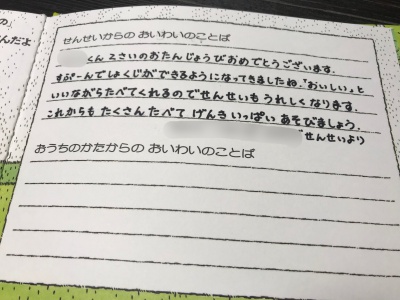 の
んだよ
せんせいからの おいわいのことば
くん 2さいのおたんじょうびおめでとうございます。
すぷーんでしょくじができるようになってきましたね。「おいしい」と
いいながらたべてくれるのでせんせいもうれしくなります。
これからも たくさん たべて げんき いっぱい あそびましょう。
せんせいより
おうちのかたからの おいわいのことば